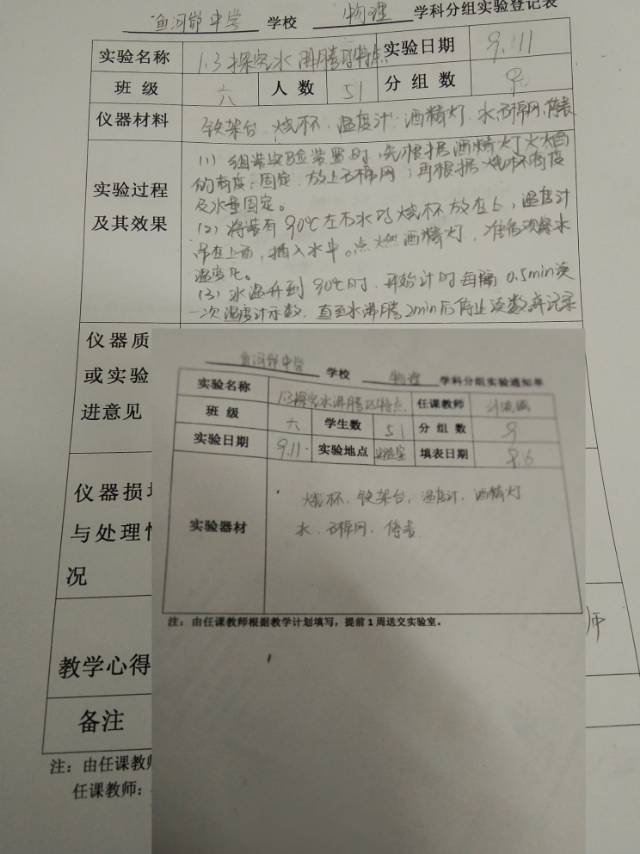 鱼河邸中学 学校 物理 学科分组实验登记表
实验名称 1.3探究水沸腾时特点 实验日期 9.11
班级 六 人数 51 分组数 9
仪器材料 铁架台 烧杯 温度计 酒精灯 水 石棉网 停表
实验过程及其效果
(1) 组装实验装置时,先根据酒精灯火焰
的高度,固定、放上石棉网;再根据烧杯高度
及水量固定。
(2) 将装有90℃左右水的烧杯放在上,温度计
吊在上面,插入水中。点燃酒精灯,准备观察水
温变化。
(3) 水温升到90℃时,开始计时每隔0.5min读
一次温度计示数,直至水沸腾2min后停止读数并记录
仪器质
或实验
进意见
仪器损
与处理情
况
师
教学心得
备注
注:由任课教师
任课教师:
鱼河邸中学 学校 物理 学科分组实验通知单
实验名称 1.3探究水沸腾时特点 任课教师
班级 六 学生数 51 分组数 9
实验日期 9.11. 实验地点 实验室 填表日期 9.6
实验器材
烧杯、铁架台、温度计、酒精灯
水、石棉网、停表
注:由任课教师根据教学计划填写,提前1周送交实验室。